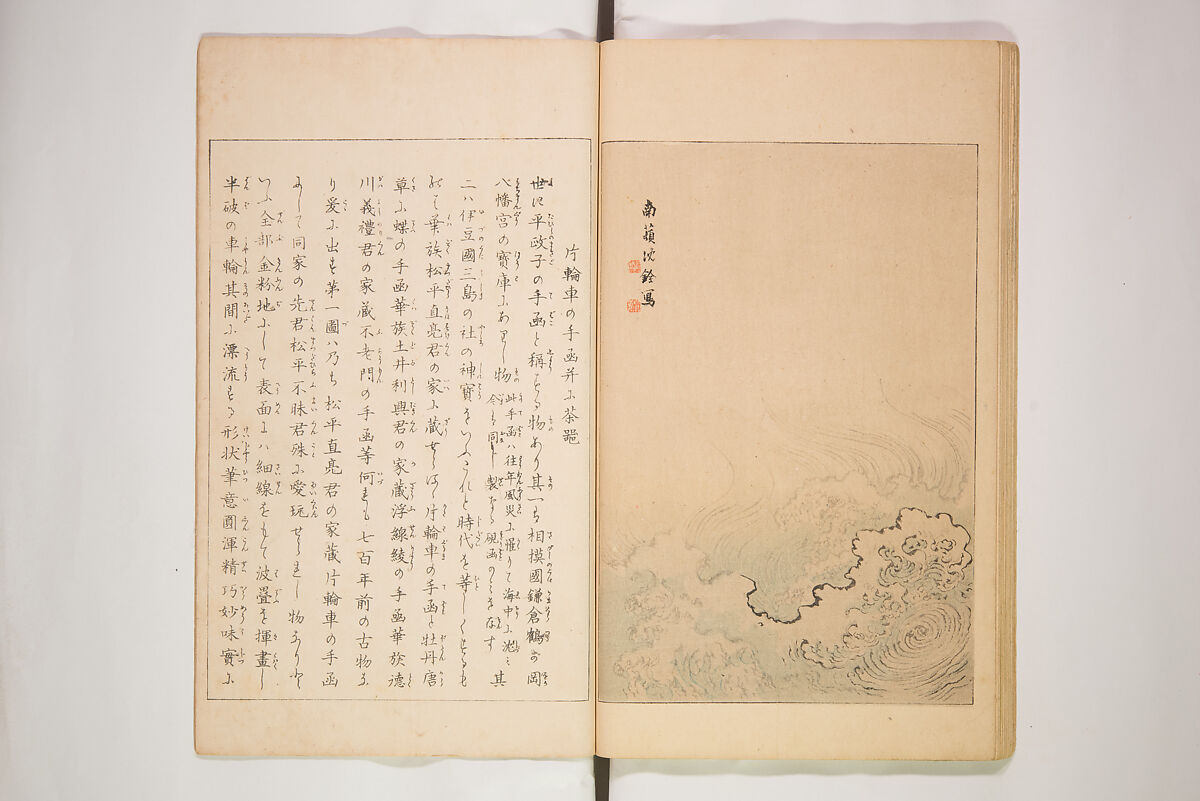 南蘋沈銓寫
片輪車の手函并に茶碗
世に平政子の手函と稱する物あり其一ち相摸國鎌倉鶴が岡
八幡宮の寶庫にありし物此手函ハ往年風災に罹りて海中に沈ミ今ハ同じ製なる硯函のミを存す其
二ハ伊豆國三島の社の神寶をいふこれと時代を等しくするも
のハ華族松平直亮君の家に藏せらるゝ片輪車の手函と牡丹唐
草に蝶の手函華族土井利與君の家藏浮線綾の手函華族德
川義禮君の家藏不老門の手函等何れも七百年前の古物な
り爰に出す第一圖ハ乃ち松平直亮君の家藏片輪車の手函
にして同家の先君松平不昧君殊に愛玩せられし物なりと
いふ全部金粉地にして表面にハ細線をもて波疊を揮畫し
半破の車輪其間に漂流する形狀筆意圓渾精巧妙味實に